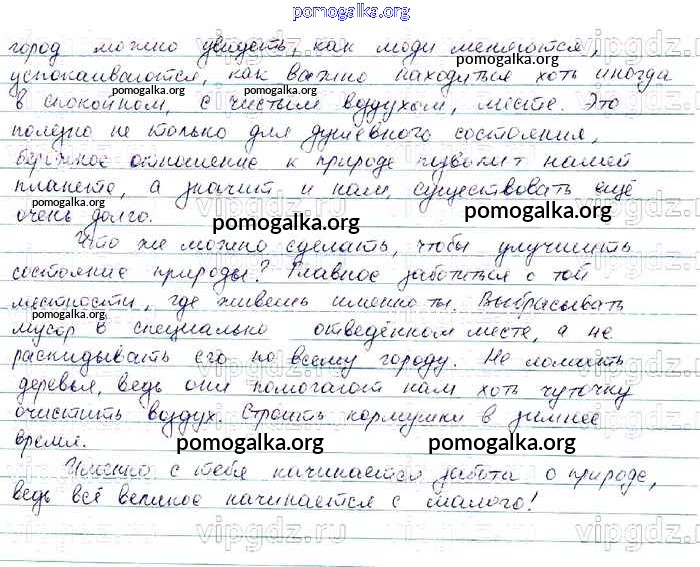 pomogalka.org
город можно увидеть, как люди меняются,
успокаиваются, как важно находиться хоть иногда
в спокойном, с чистым воздухом, месте. Это
полезно не только для душевного состояния,
бережное отношение к природе позволит нашей
планете, а значит и нам, существовать ещё
очень долго.
Что же можно сделать, чтобы улучшить
состояние природы? Главное заботиться о той
местности, где живешь именно ты. Выбрасывать
мусор в специально отведённом месте, а не
раскидывать его по всему городу. Не ломать
деревья, ведь они помогают нам хоть чуточку
очистить воздух. Строить кормушки в зимнее
время.
Именно с тебя начинается забота о природе,
ведь всё великое начинается с малого!